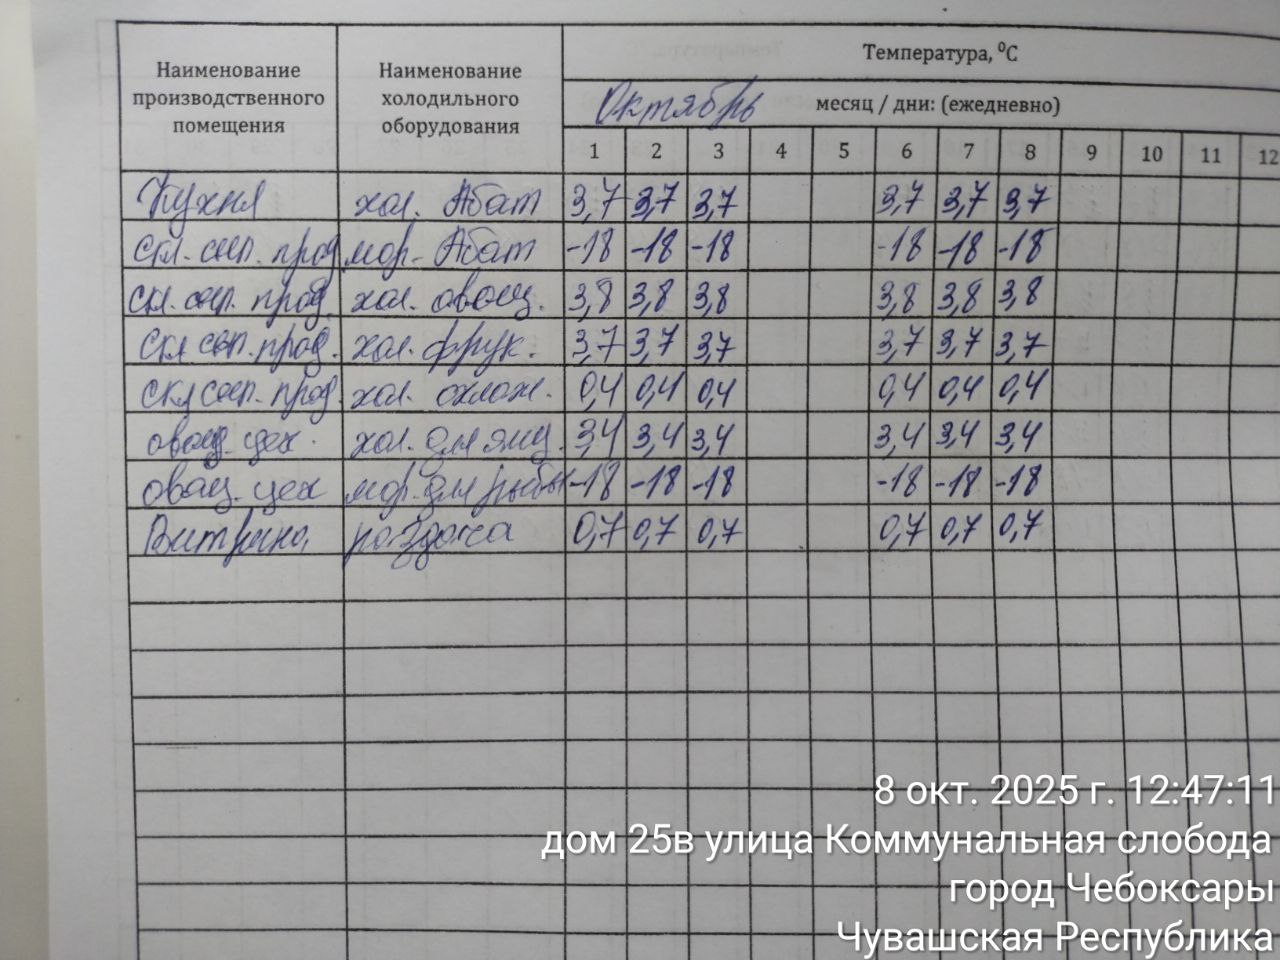 Наименование производственного помещения Наименование холодильного оборудования Температура, ⁰С
Октябрь месяц / дни: (ежедневно)
1 2 3 4 5 6 7 8 9 10 11 12
Кухня хол. Абат 3,7 3,7 3,7 3,7 3,7 3,7
скл. сып. прод. мор. Абат -18 -18 -18 -18 -18 -18
скл. сып. прод. хол. овощ. 3,8 3,8 3,8 3,8 3,8 3,8
скл. сып. прод. хол. фрук. 3,7 3,7 3,7 3,7 3,7 3,7
скл сып. прод. хол. охлаж. 0,4 0,4 0,4 0,4 0,4 0,4
овощ. цех. хол. для яиц. 3,4 3,4 3,4 3,4 3,4 3,4
овощ. цех мор. для рыбы -18 -18 -18 -18 -18 -18
Витрина раздача 0,7 0,7 0,7 0,7 0,7 0,7
8 окт. 2025 г. 12:47:11
дом 25в улица Коммунальная слобода
город Чебоксары
Чувашская Республика